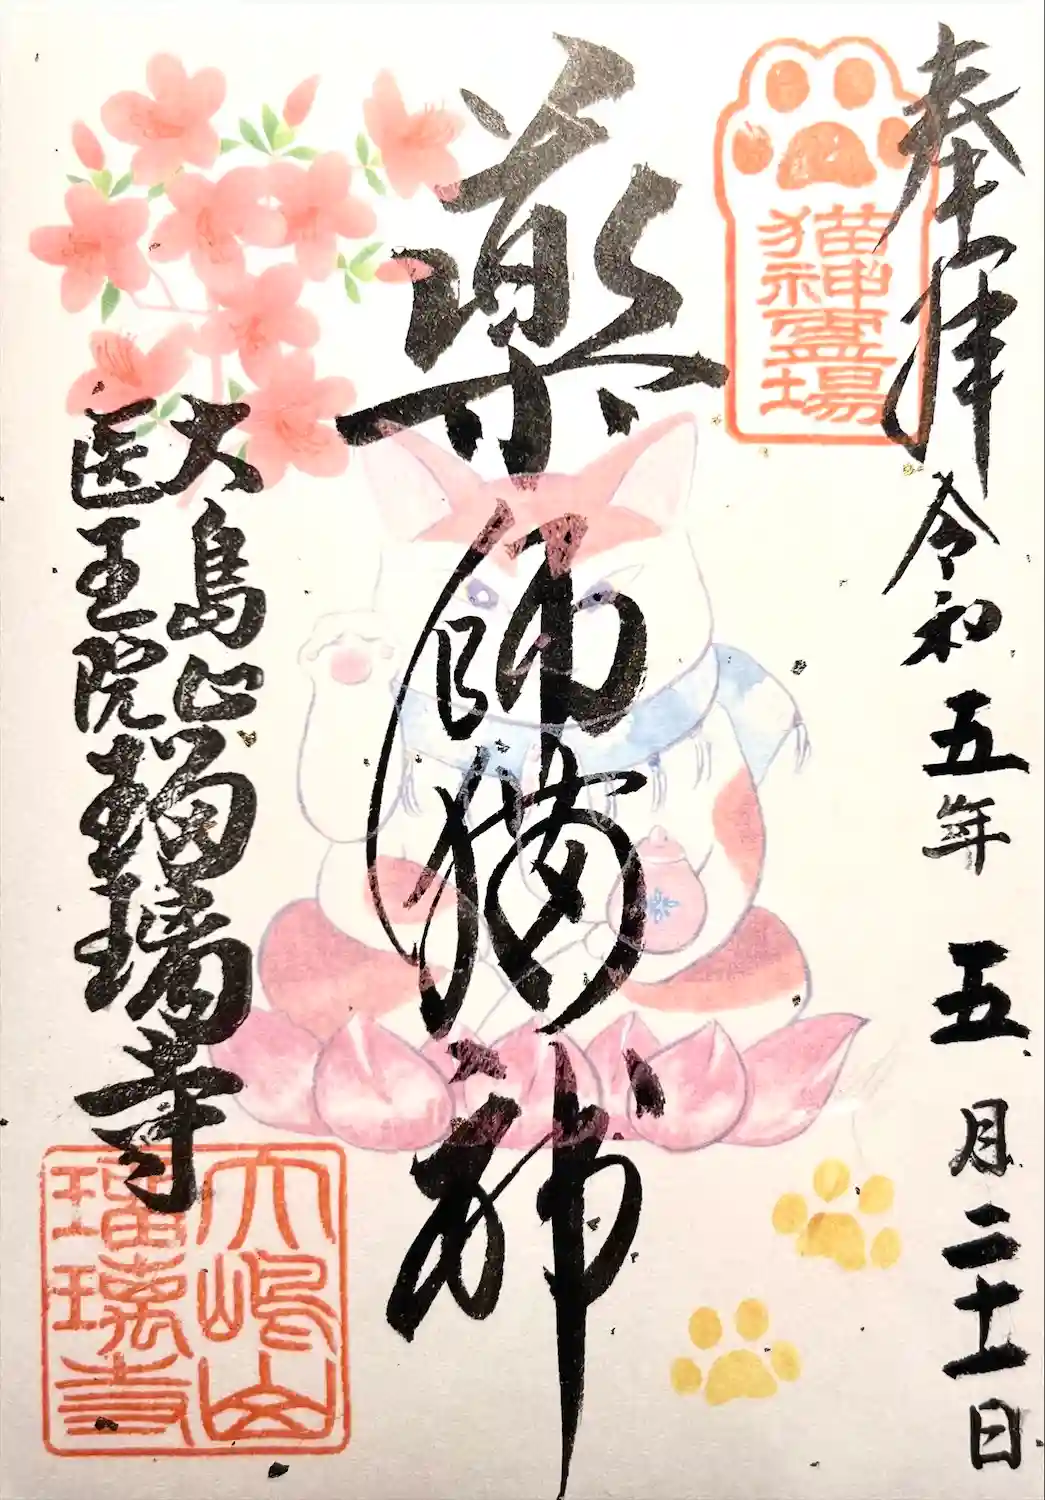 奉拝 令和五年 五月二十一日
猫神霊場
薬師猫神
大島山
医王院瑠璃寺
大嶋山
瑠璃寺